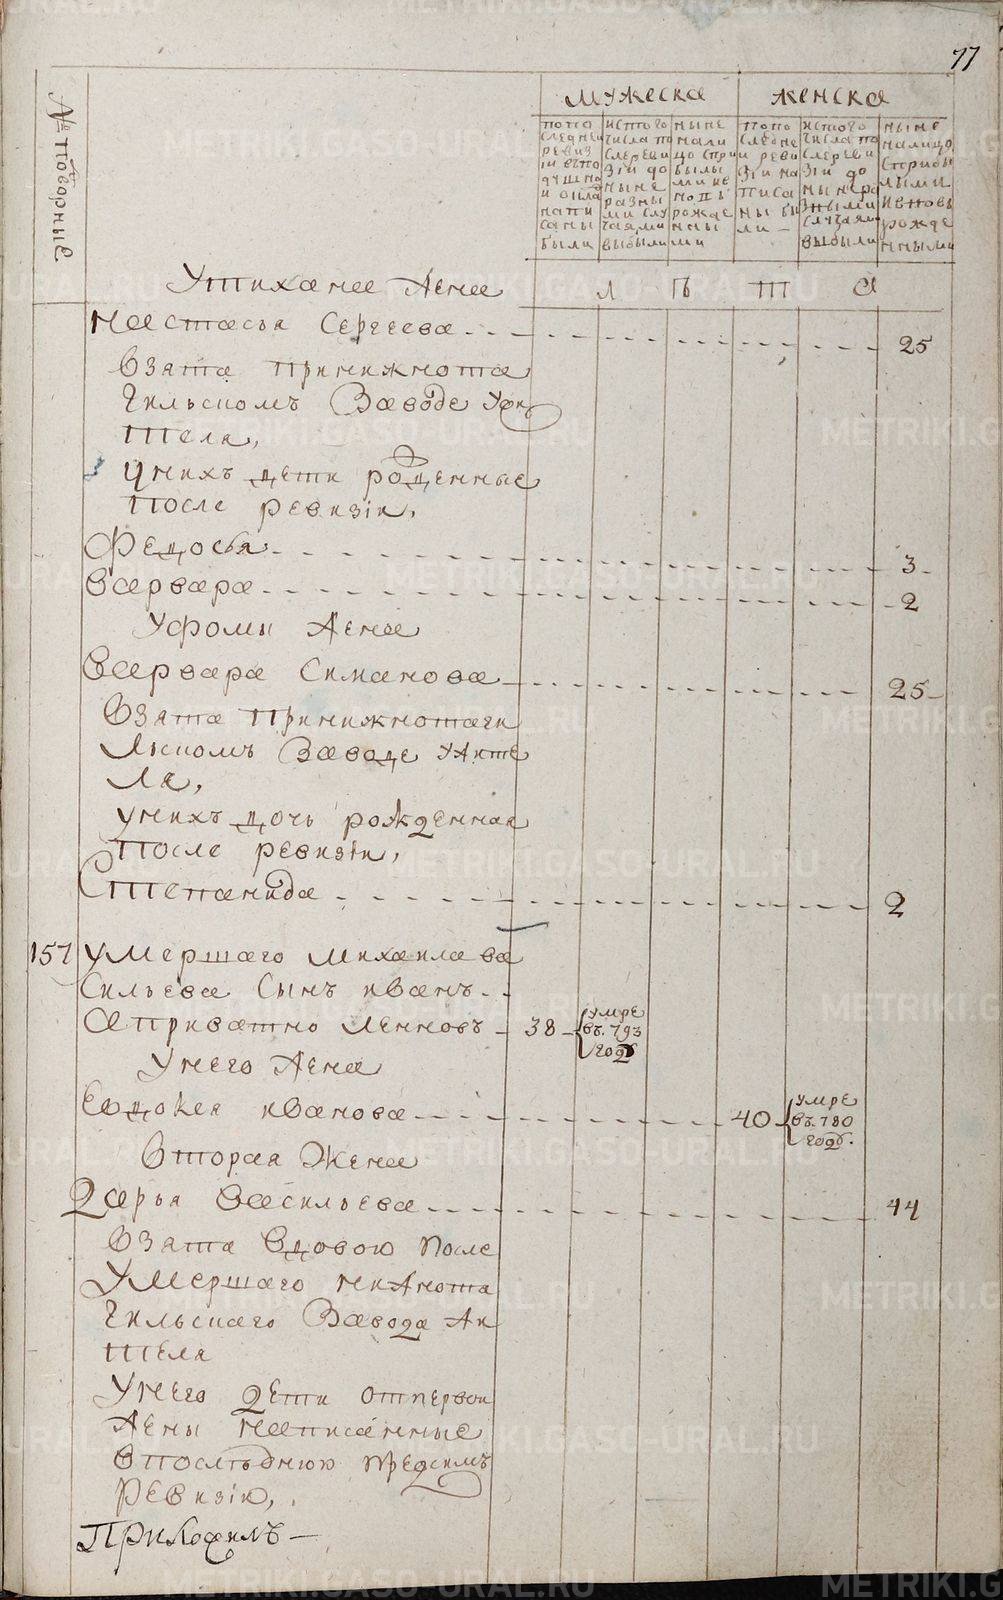 77
№ подворные
мужеска
женска
попо
следней
ревиз
и ипо
душно
напи
саны
были
исптого
числа по
сле реви
зіи до
ныне
разны
ми слу
чаями
выбыли
ныне
нали
цо при
былы
ми и
рожде
нны
ми
попо
следне
и реви
зіи на
писа
ны бы
ли
исптого
числа по
сле реви
зіи до
ныне ра
зными
случаями
выбыли
ныне
налицо
сприбы
лыми
ивновь
рожде
нными
Утихана жена
л ѣ т а
Настасья Сергеева 25
Взята принижнота
гильскомъ Заводе Ужи
теля,
Унихъ дети рожденные
после ревизіи,
Федосья 3
Варвара 2
Уфомы жена
Варвара Симанова 25
Взята принижнотаги
льскомъ Заводе Ужите
ля,
унихъ дочь рожденная
после ревизіи,
Степанида 2
157 умершаго михаила ва
сильева сынъ иванъ
априватно Леновъ 38 умре
въ 793
годѣ
Унего жена
Евдокея иванова 40 умре
въ 780
годѣ.
Вторая жена
Дарья Васильева 44
Взята вдовою после
Умершаго нижнота
гильскаго Завода жи
теля
Унего дети отпервои
жены написанные
впоследнюю предсимъ
Ревизію,
METRIKI.GASO-URAL.RU